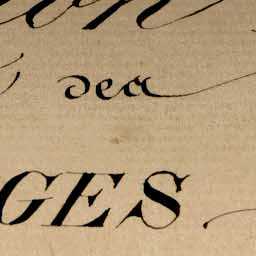 on
des
GES